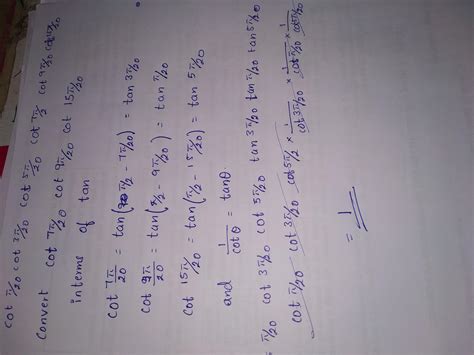 cot π/20 cot 3π/20 cot 5π/20 cot 7π/20 cot 9π/20 cot 15π/20
convert cot 7π/20 cot 9π/20 cot 15π/20
interms of tan
cot 7π/20 = tan(π/2 - 7π/20) = tan 3π/20
cot 9π/20 = tan(π/2 - 9π/20) = tan π/20
cot 15π/20 = tan(π/2 - 15π/20) = tan 5π/20
and 1/cotθ = tanθ
π/20 cot 3π/20 cot 5π/20 tan 3π/20 tan π/20 tan 5π/20
cot π/20 cot 3π/20 cot 5π/2 × 1/cot 3π/20 × 1/cot π/20 × 1/cot 5π/20
= 1